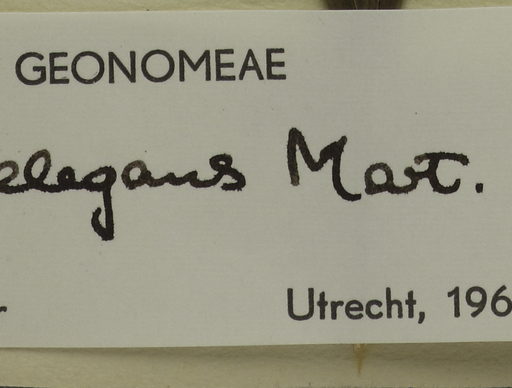 GEONOMEAE
elegans Mart.
Utrecht, 196